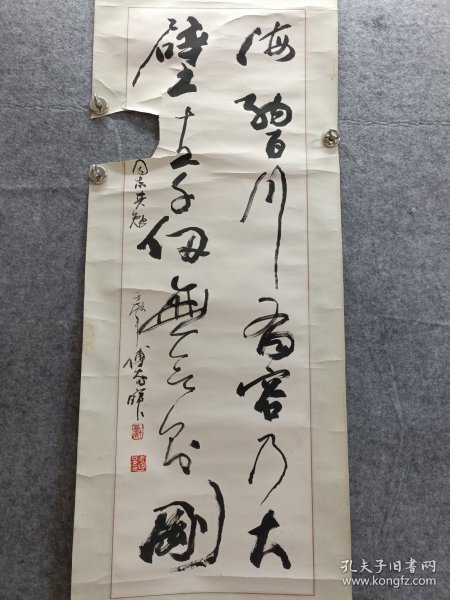 海納百川有容乃大
壁立千仞無欲則剛
同志共勉
戌年 傅
孔夫子旧书网
www.kongfz.com